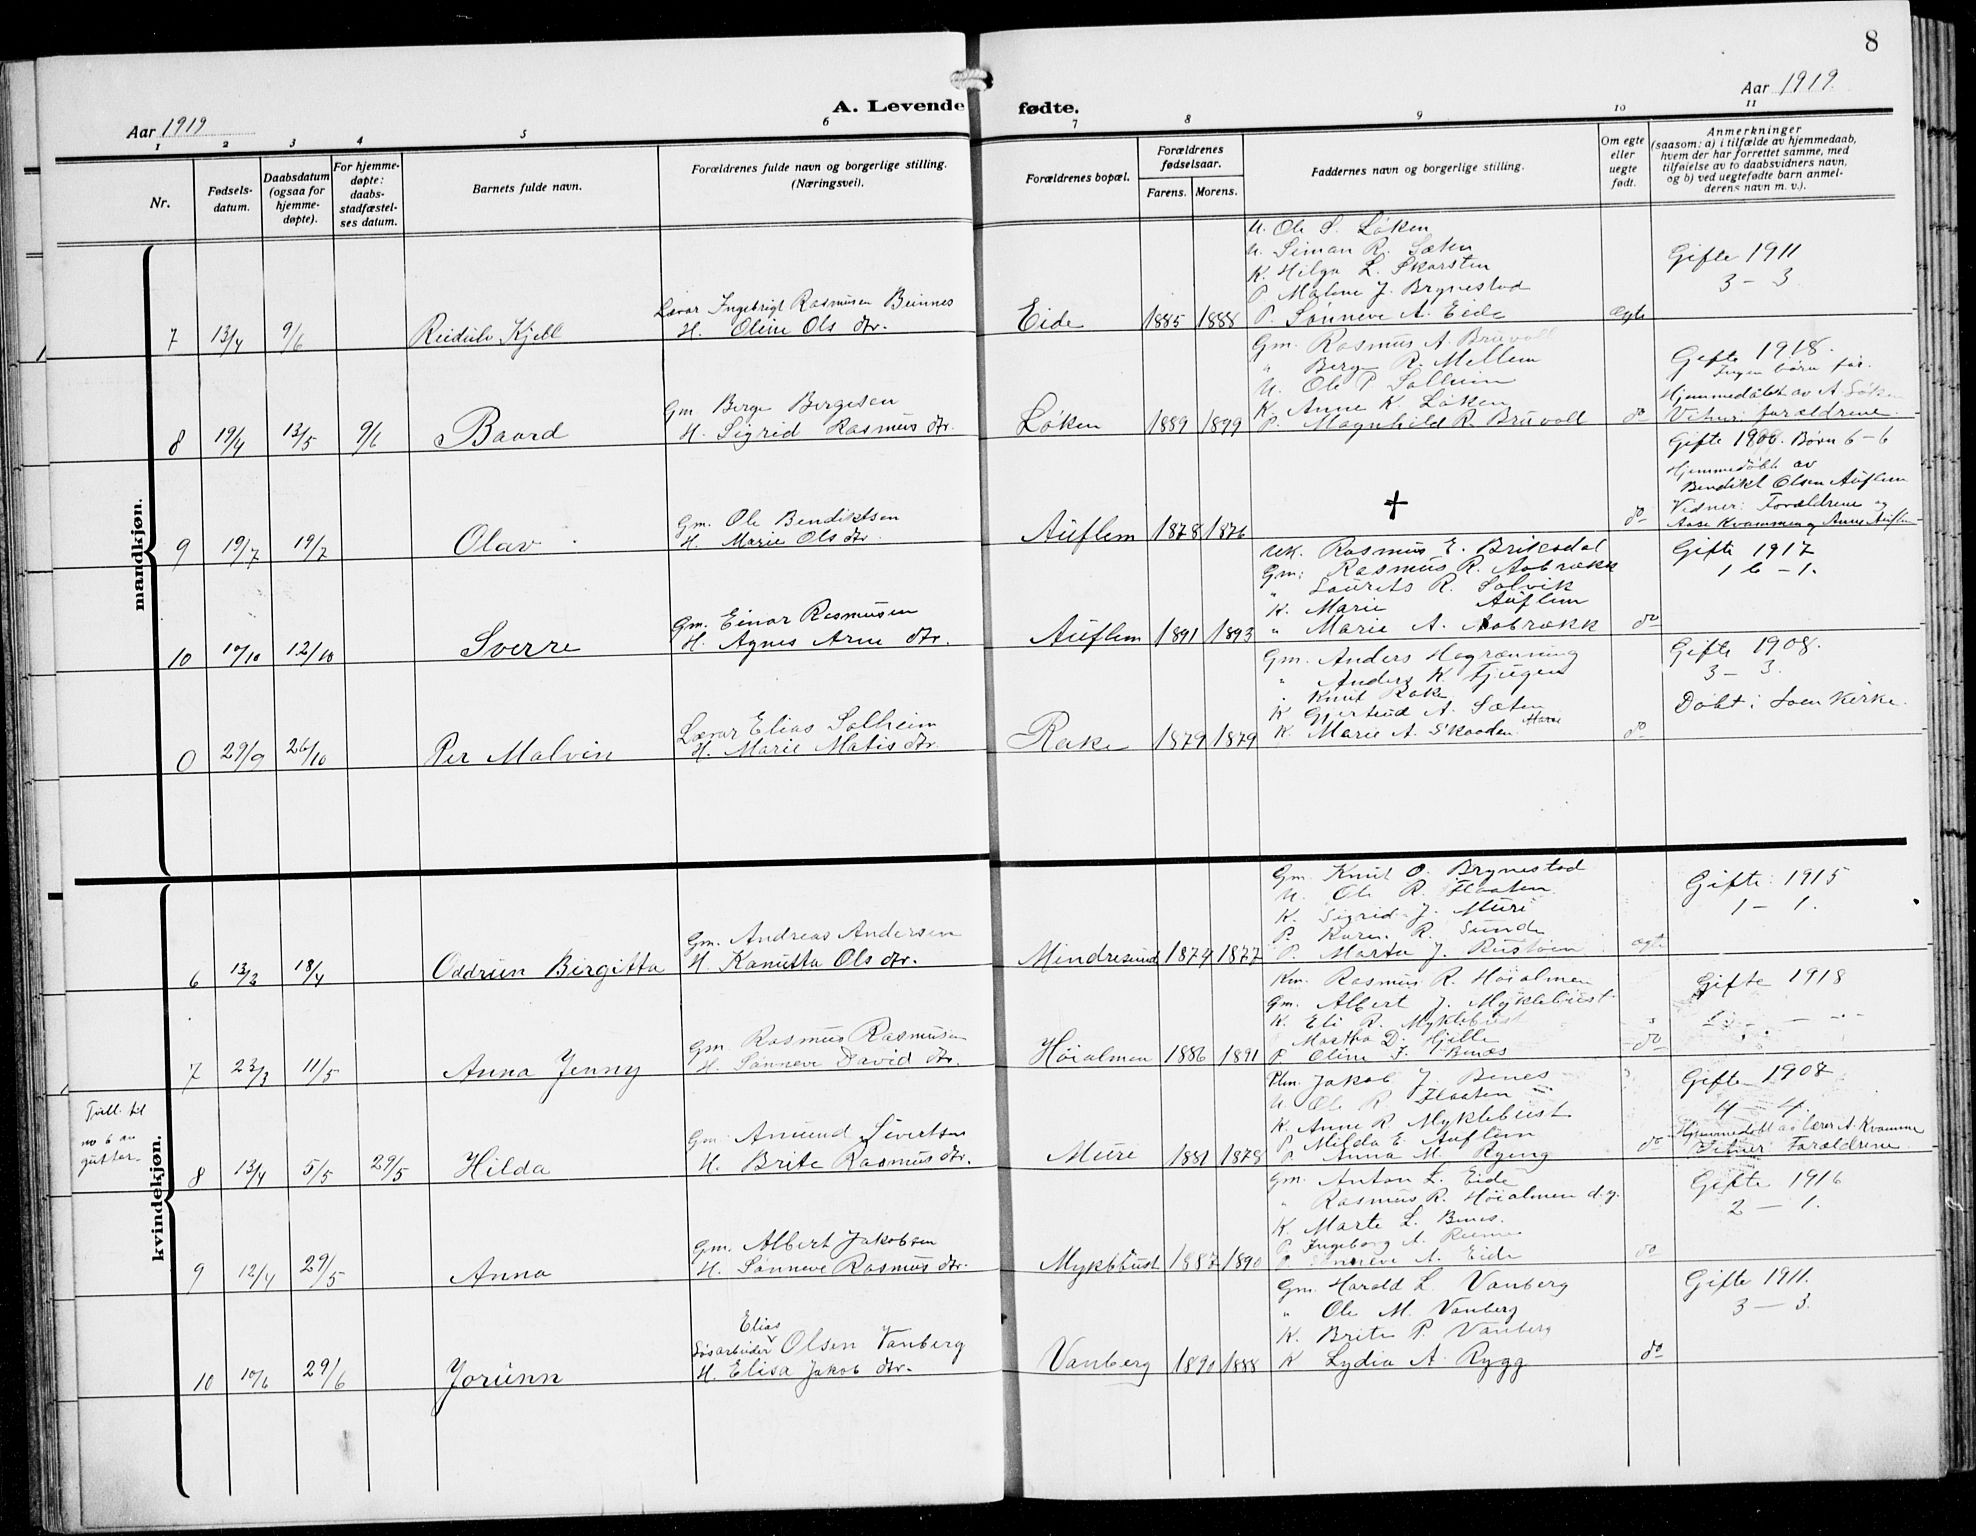 8
A. Levende fødte.
Aar 1919
Aar 1919.
1 2 3 4 5 6 7 8 9 10 11
Nr.
Fødsels-
datum.
Daabsdatum
(ogsaa for
hjemme-
døpte).
For hjemme-
døpte:
daabs
stadfæstel-
ses datum.
Barnets fulde navn.
Forældrenes fulde navn og borgerlige stilling.
(Næringsvei).
Forældrenes bopæl.
Forældrenes
fødselsaar.
Farens. Morens.
Faddernes navn og borgerlige stilling.
Om egte
eller
uegte
født.
Anmerkninger
(saasom: a) i tilfælde av hjemmedaab,
hvem der har forrettet samme, med
tilføielse av to daabsvidners navn,
og b) ved uegtefødte barn anmel-
derens navn m. v.).
mandkjøn.
7 13/4 9/6 Reidulv Kjell
Lærer Ingebrigt Rasmusen Beinnes
H. Oline Ols dtr.
Eide 1885 1888
U. Ole S. Løken
U. Simon R. Sæten
K. Helga L. Skarsten
P. Malene J. Brynestad
P. Sønneve A. Eide
ægte
Gifte 1911
3 – 3
8 19/4 13/5 9/6 Baard
Gm. Berge Bergesen
H. Sigrid Rasmus dtr.
Løken 1889 1899
Gm. Rasmus A. Bruvoll
" Berge R. Mellem
U. Ole P. Solheim
K. Anne K. Løken
P. Magnhild R. Bruvoll
do
Gifte 1918.
Ingen børn før.
Hjemmedøbt av A. Løken
Vitner: forældrene.
9 19/7 19/7 Olav
Gm. Ole Bendiktsen
H. Marie Ols dtr.
Auflem 1878 1876
+
do
Gifte 1900. Børn 6–6
Hjemmedøbt av
Bendikt Olsen Auflem
Vidner: Forældrene og
Aase Kvamme og Anne Auflem
10 10/10 12/10 Sverre
Gm. Einar Rasmusen
H. Agnes Arne dtr.
Auflem 1891 1893
Uk. Rasmus E. Briksdal
Gm: Rasmus R. Aabrækk
" Laurits R. Solvik
K. Marie Auflem
" Marie A. Aabrækk
do
Gifte 1917
1 – 1.
0 29/9 26/10 Per Malvin
Lærer Elias Solheim
H. Marie Matis dtr.
Rake 1879 1879
Gm. Anders Hogrenning
" Anders K. Tjugen
" Knut Rake
K Gjertrud A. Sæten
K. Marie A. Skaaden
do
Gifte 1908.
3 – 3.
Døbt i Loen Kirke.
kvindekjøn.
6 13/3 18/4 Oddrun Birgitta
Gm. Andreas Andersen
H. Kanutta Ols dtr.
Mindresund 1874 1877
Gm. Knut O. Brynestad
U. Ole R. Flaaten
K. Sigrid J. Muri
P. Karen R. Sunde
P. Marta J. Rustøen
ægte
Gifte: 1915
1 – 1.
7 23/3 11/5 Anna Jenny
Gm. Rasmus Rasmusen
H. Sønneve David dtr.
Høialmen 1886 1891
Km. Rasmus R. Høialmen
Gm. Albert J. Myklebust
K. Eli R. Myklebust
Martha D. Hjelle
P Oline J. Benes
do
Gifte 1918
Tvill. til
no 6 av
gutter.
8 13/4 5/5 29/5 Hilda
Gm. Amund Sivertsen
H. Brite Rasmus dtr.
Mure 1881 1878
Jakob J. Benes
U. Ole R. Flaaten
K. Anne R. Myklebust
P Milda E. Auflem
P Anna M. Ryeng
do
Gifte 1908
4 4.
Hjemmedøbt av Lærer A. Kvamme
Vitner: Forældrene.
9 12/4 29/5 Anna
Gm. Albert Jakobsen
H. Sønneve Rasmus dtr.
Myklebust 1887 1890
Gm. Anton L. Eide
" Rasmus R. Høialmen d.y.
K Marte L. Benes.
P Ingeborg A.
P. Sønneve A. Eide
do
Gifte 1916
2 – 1.
10 10/6 29/6 Jorunn
Elias
Løsarbeider Olsen Vanberg
H. Elisa Jakob dtr.
Vanberg 1890 1888
Gm. Harald L. Vanberg
" Ole M. Vanberg
K. Brite P. Vanberg
K Lydia A. Rygg
do
Gifte 1911.
3 – 3.